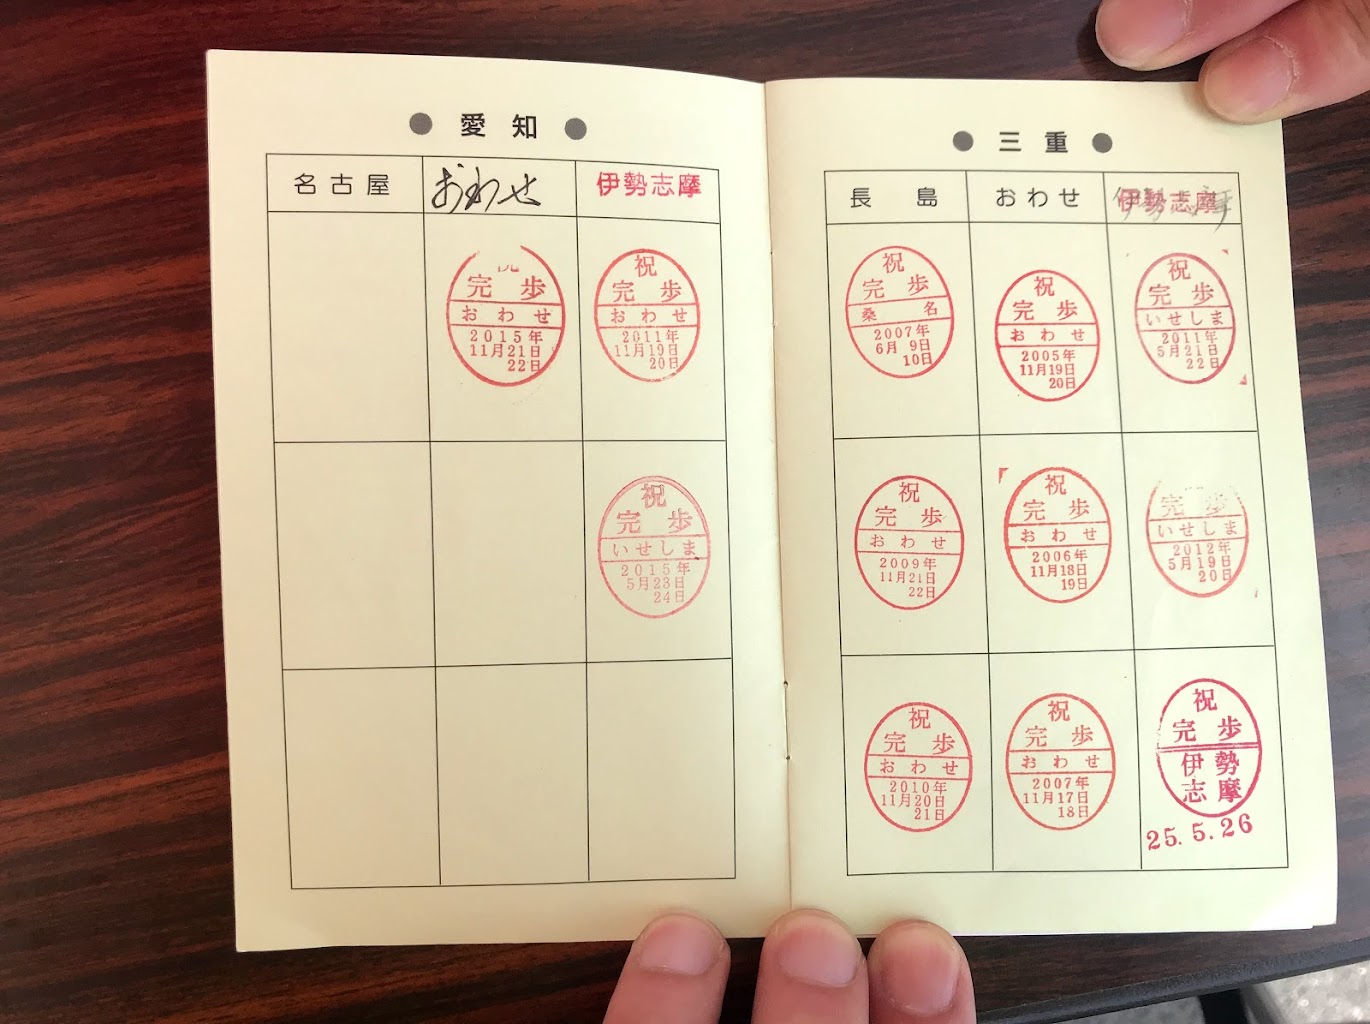 ● 愛知 ●
名古屋
おわせ
伊勢志摩
祝
完歩
おわせ
2015年
11月21日
22日
祝
完歩
おわせ
2011年
11月19日
20日
祝
完歩
いせしま
2015年
5月23日
24日
● 三重 ●
長島
おわせ
伊勢志摩
祝
完歩
桑名
2007年
6月9日
10日
祝
完歩
おわせ
2005年
11月19日
20日
祝
完歩
いせしま
2011年
5月21日
22日
祝
完歩
おわせ
2009年
11月21日
22日
祝
完歩
おわせ
2006年
11月18日
19日
完歩
いせしま
2012年
5月19日
20日
祝
完歩
おわせ
2010年
11月20日
21日
祝
完歩
おわせ
2007年
11月17日
18日
祝
完歩
伊勢
志摩
25.5.26